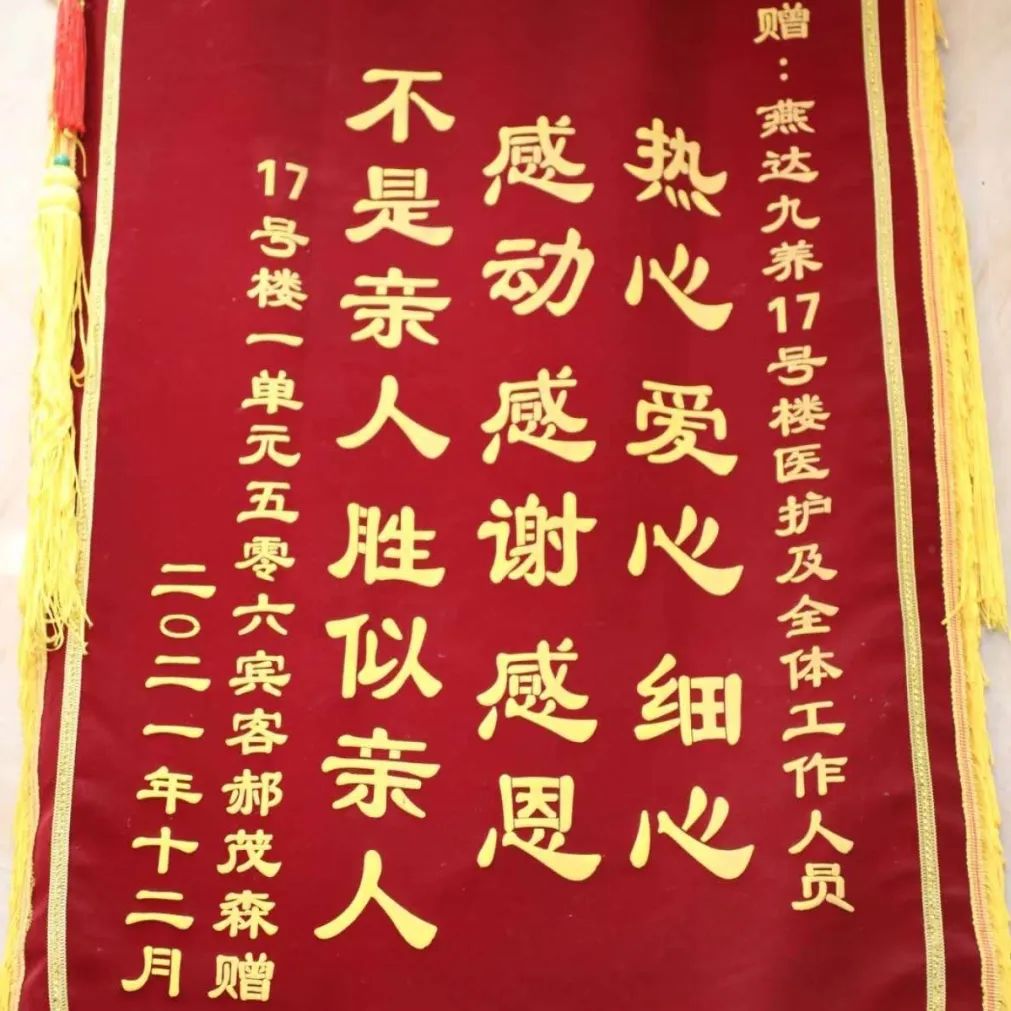 赠：燕达九养17号楼医护及全体工作人员
热心爱心细心
感动感谢感恩
不是亲人胜似亲人
17号楼一单元五零六宾客郝茂森赠
二〇二一年十二月